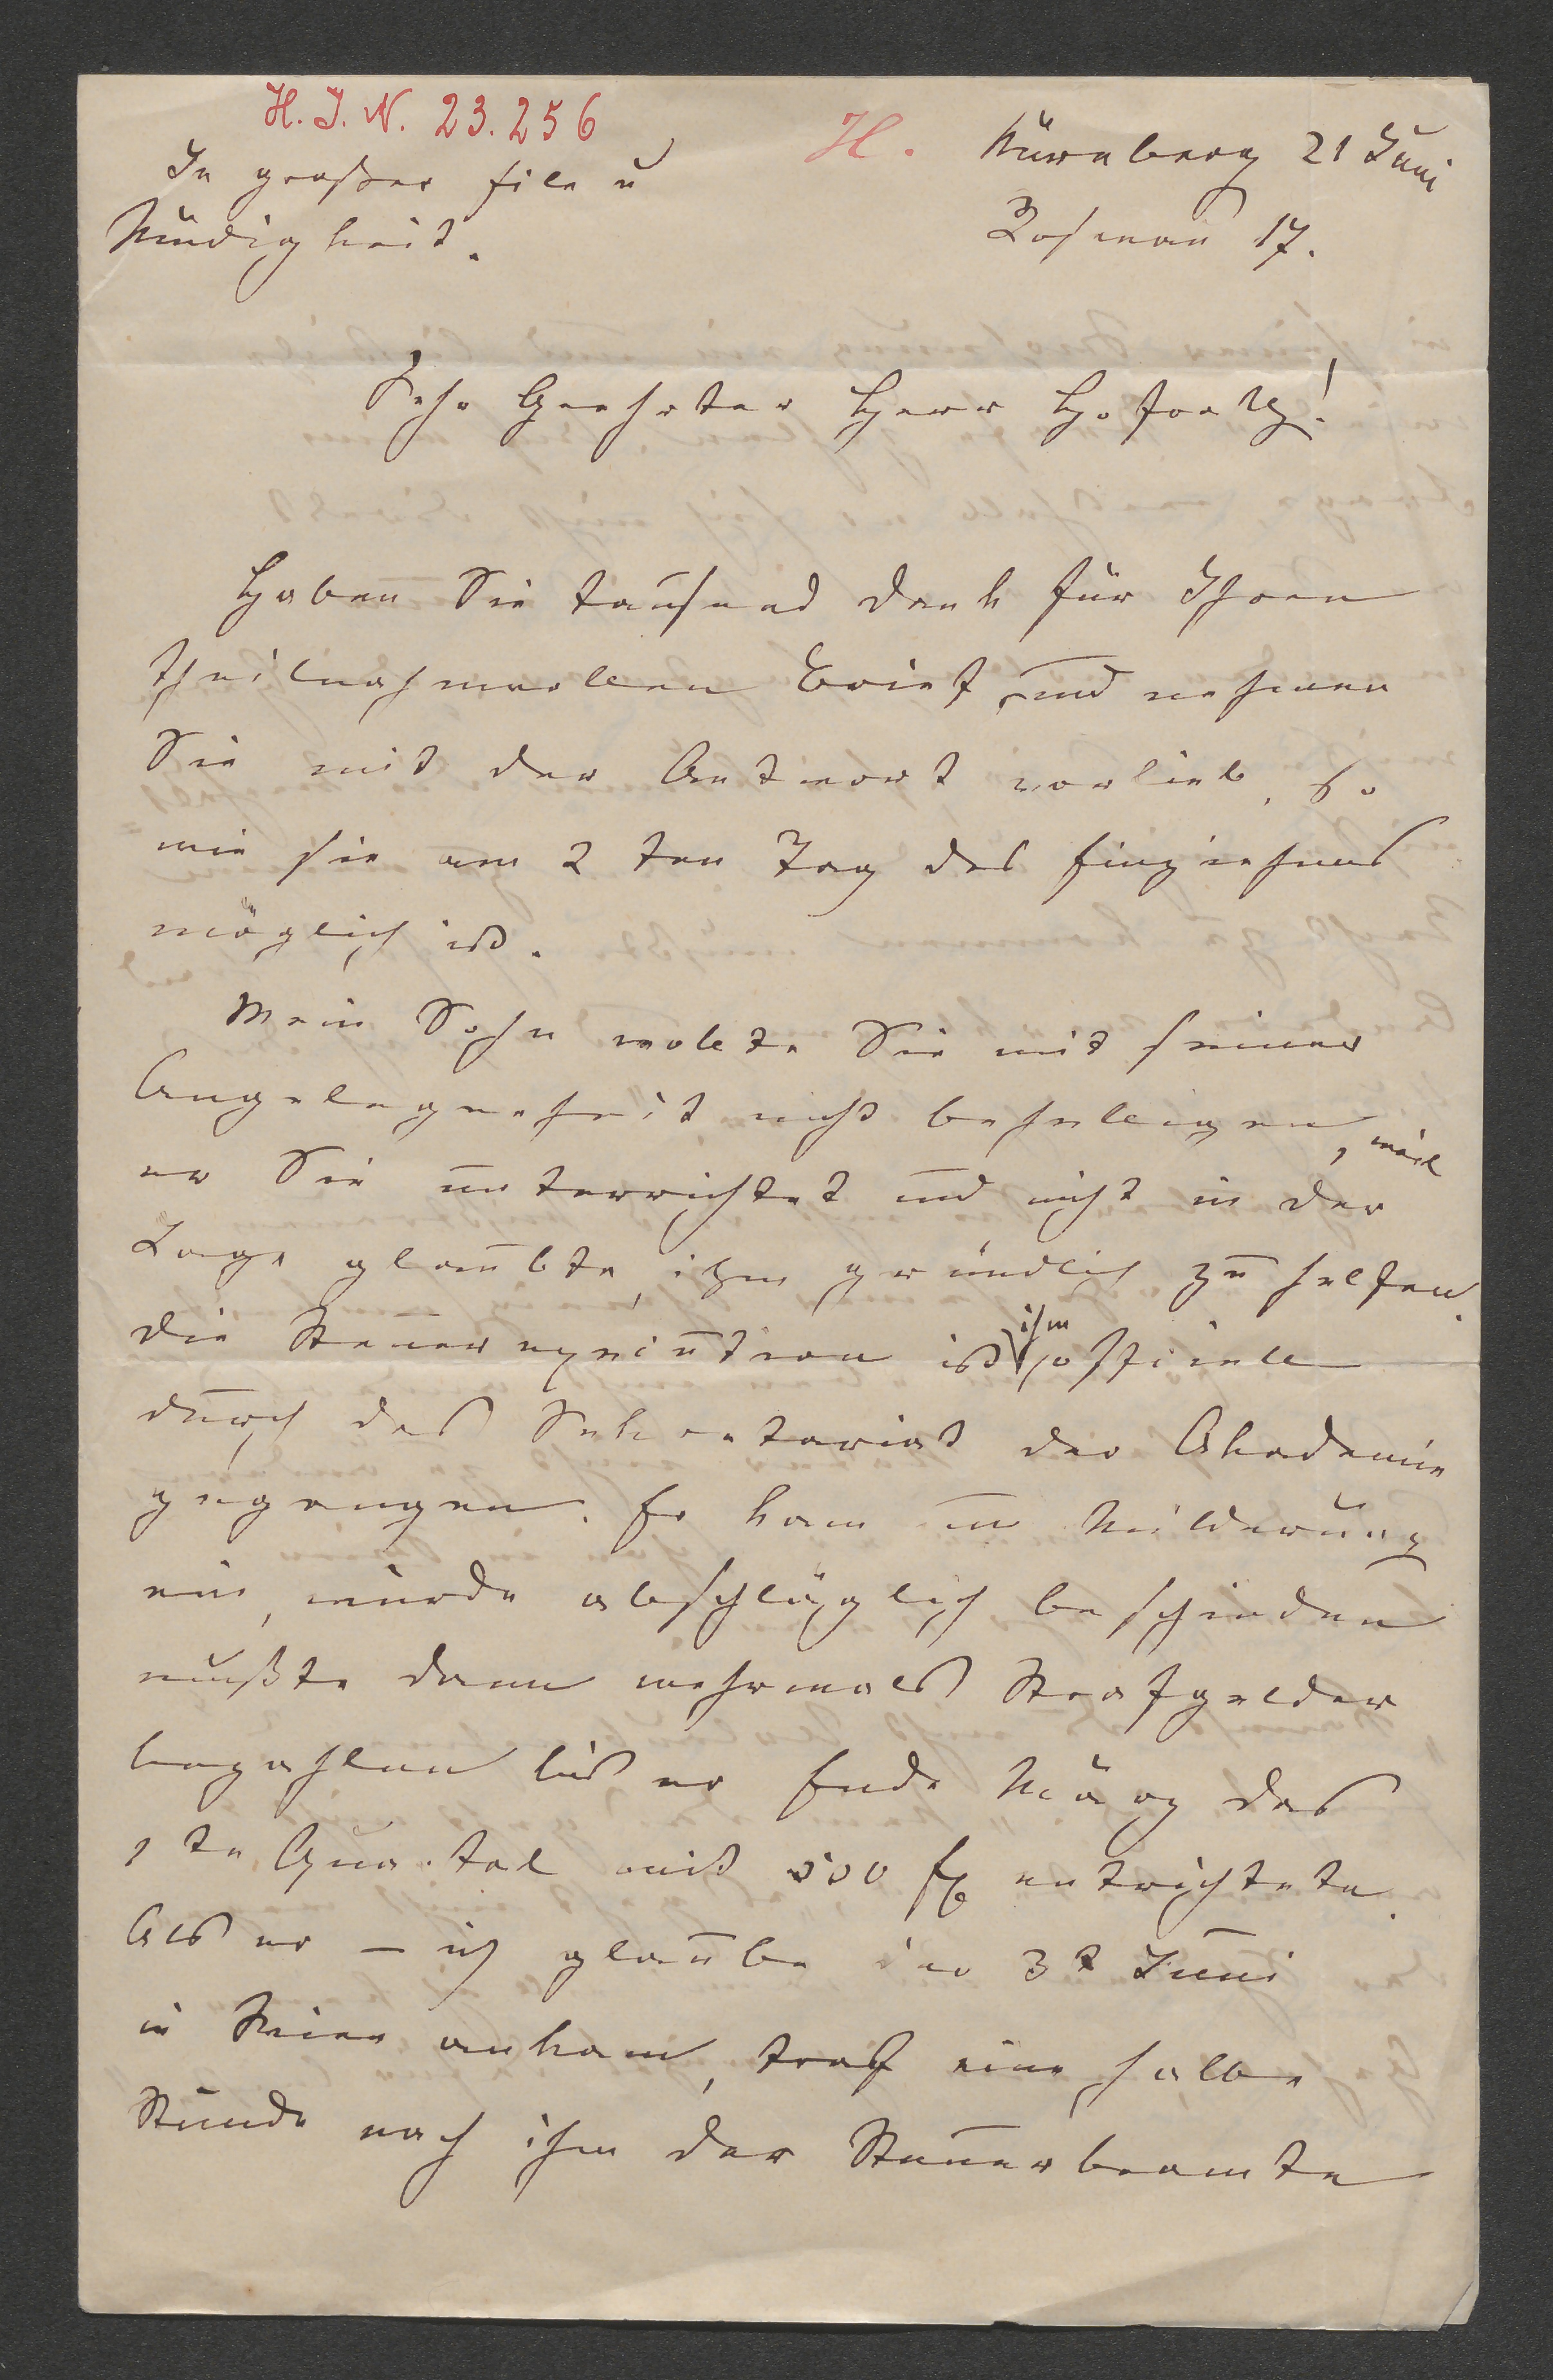 H. J. N. 23.256
H.
Nürnberg 21 Juni
Rosenau 17.
In großer Eile u
Müdigkeit.
Sehr Geehrter Herr Hofrath!
Haben Sie tausend Dank für Ihren
theilnahmvollen Brief und nehmen
Sie mit der Antwort vorlieb, so
wie sie am 2 ten Tag des Einziehens
möglich ist.
Mein Sohn wollte Sie mit seiner
Angelegenheit nicht behelligen, weil
er Sie unterrichtet und nicht in der
Lage glaubte, ihm gründlich zu helfen.
Die Steuerexecution ist ihm officiell
durch das Sekretariat der Akademie
zugegangen. Er kam um Milderung
ein, wurde abschläglich beschieden
mußte dann mehrmals Strafgelder
bezahlen bis er Ende März das
1 te Quartal mit 500 fl entrichtete.
Als er – ich glaube den 3t Juni
in Wien ankam, traf eine halbe
Stunde nach ihm der Steuerbeamte